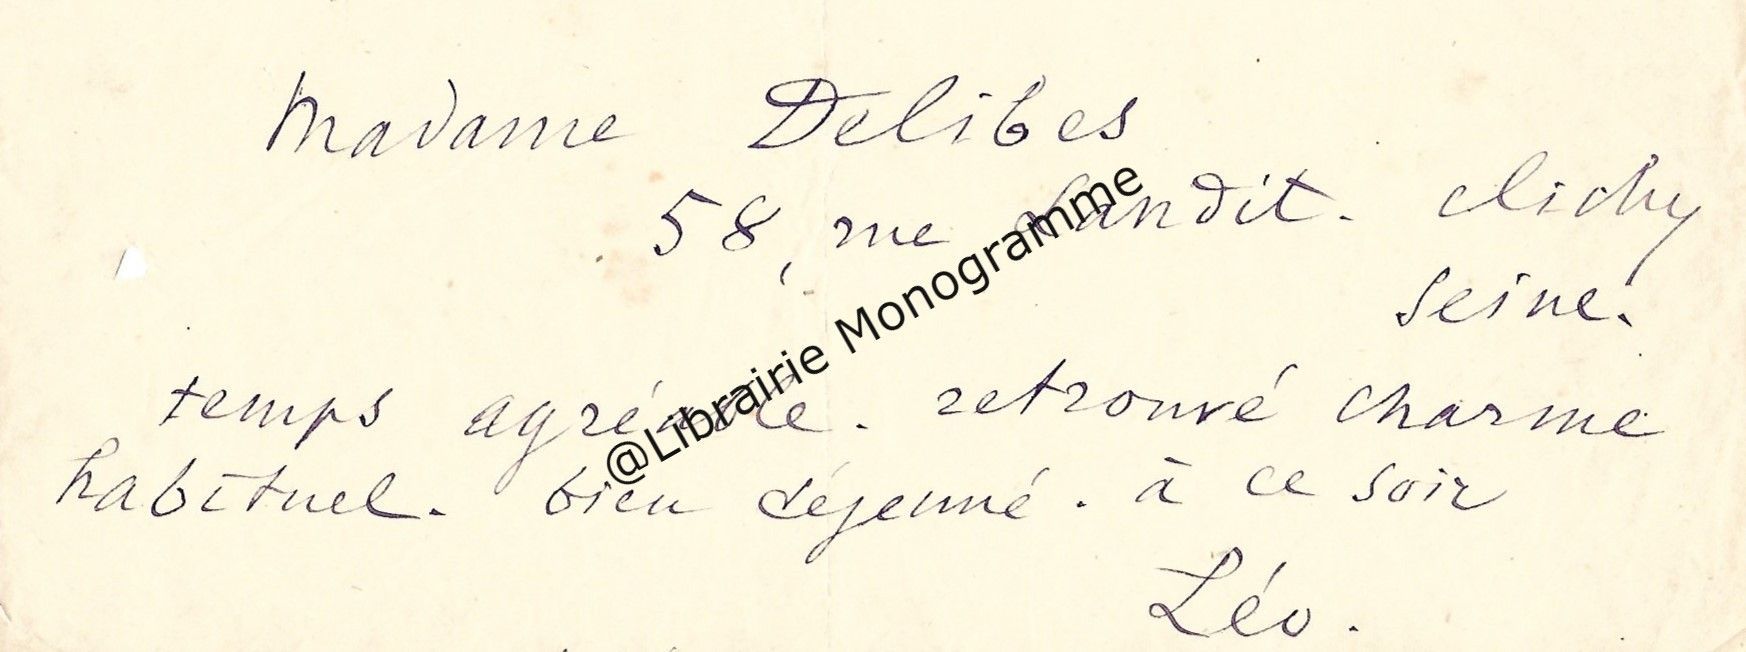 Madame Delibes
58, rue Landit. clichy
Seine.
temps agréable. retrouvé charme
habituel. bien déjeuné. à ce soir
Léo.
@Librairie Monogramme